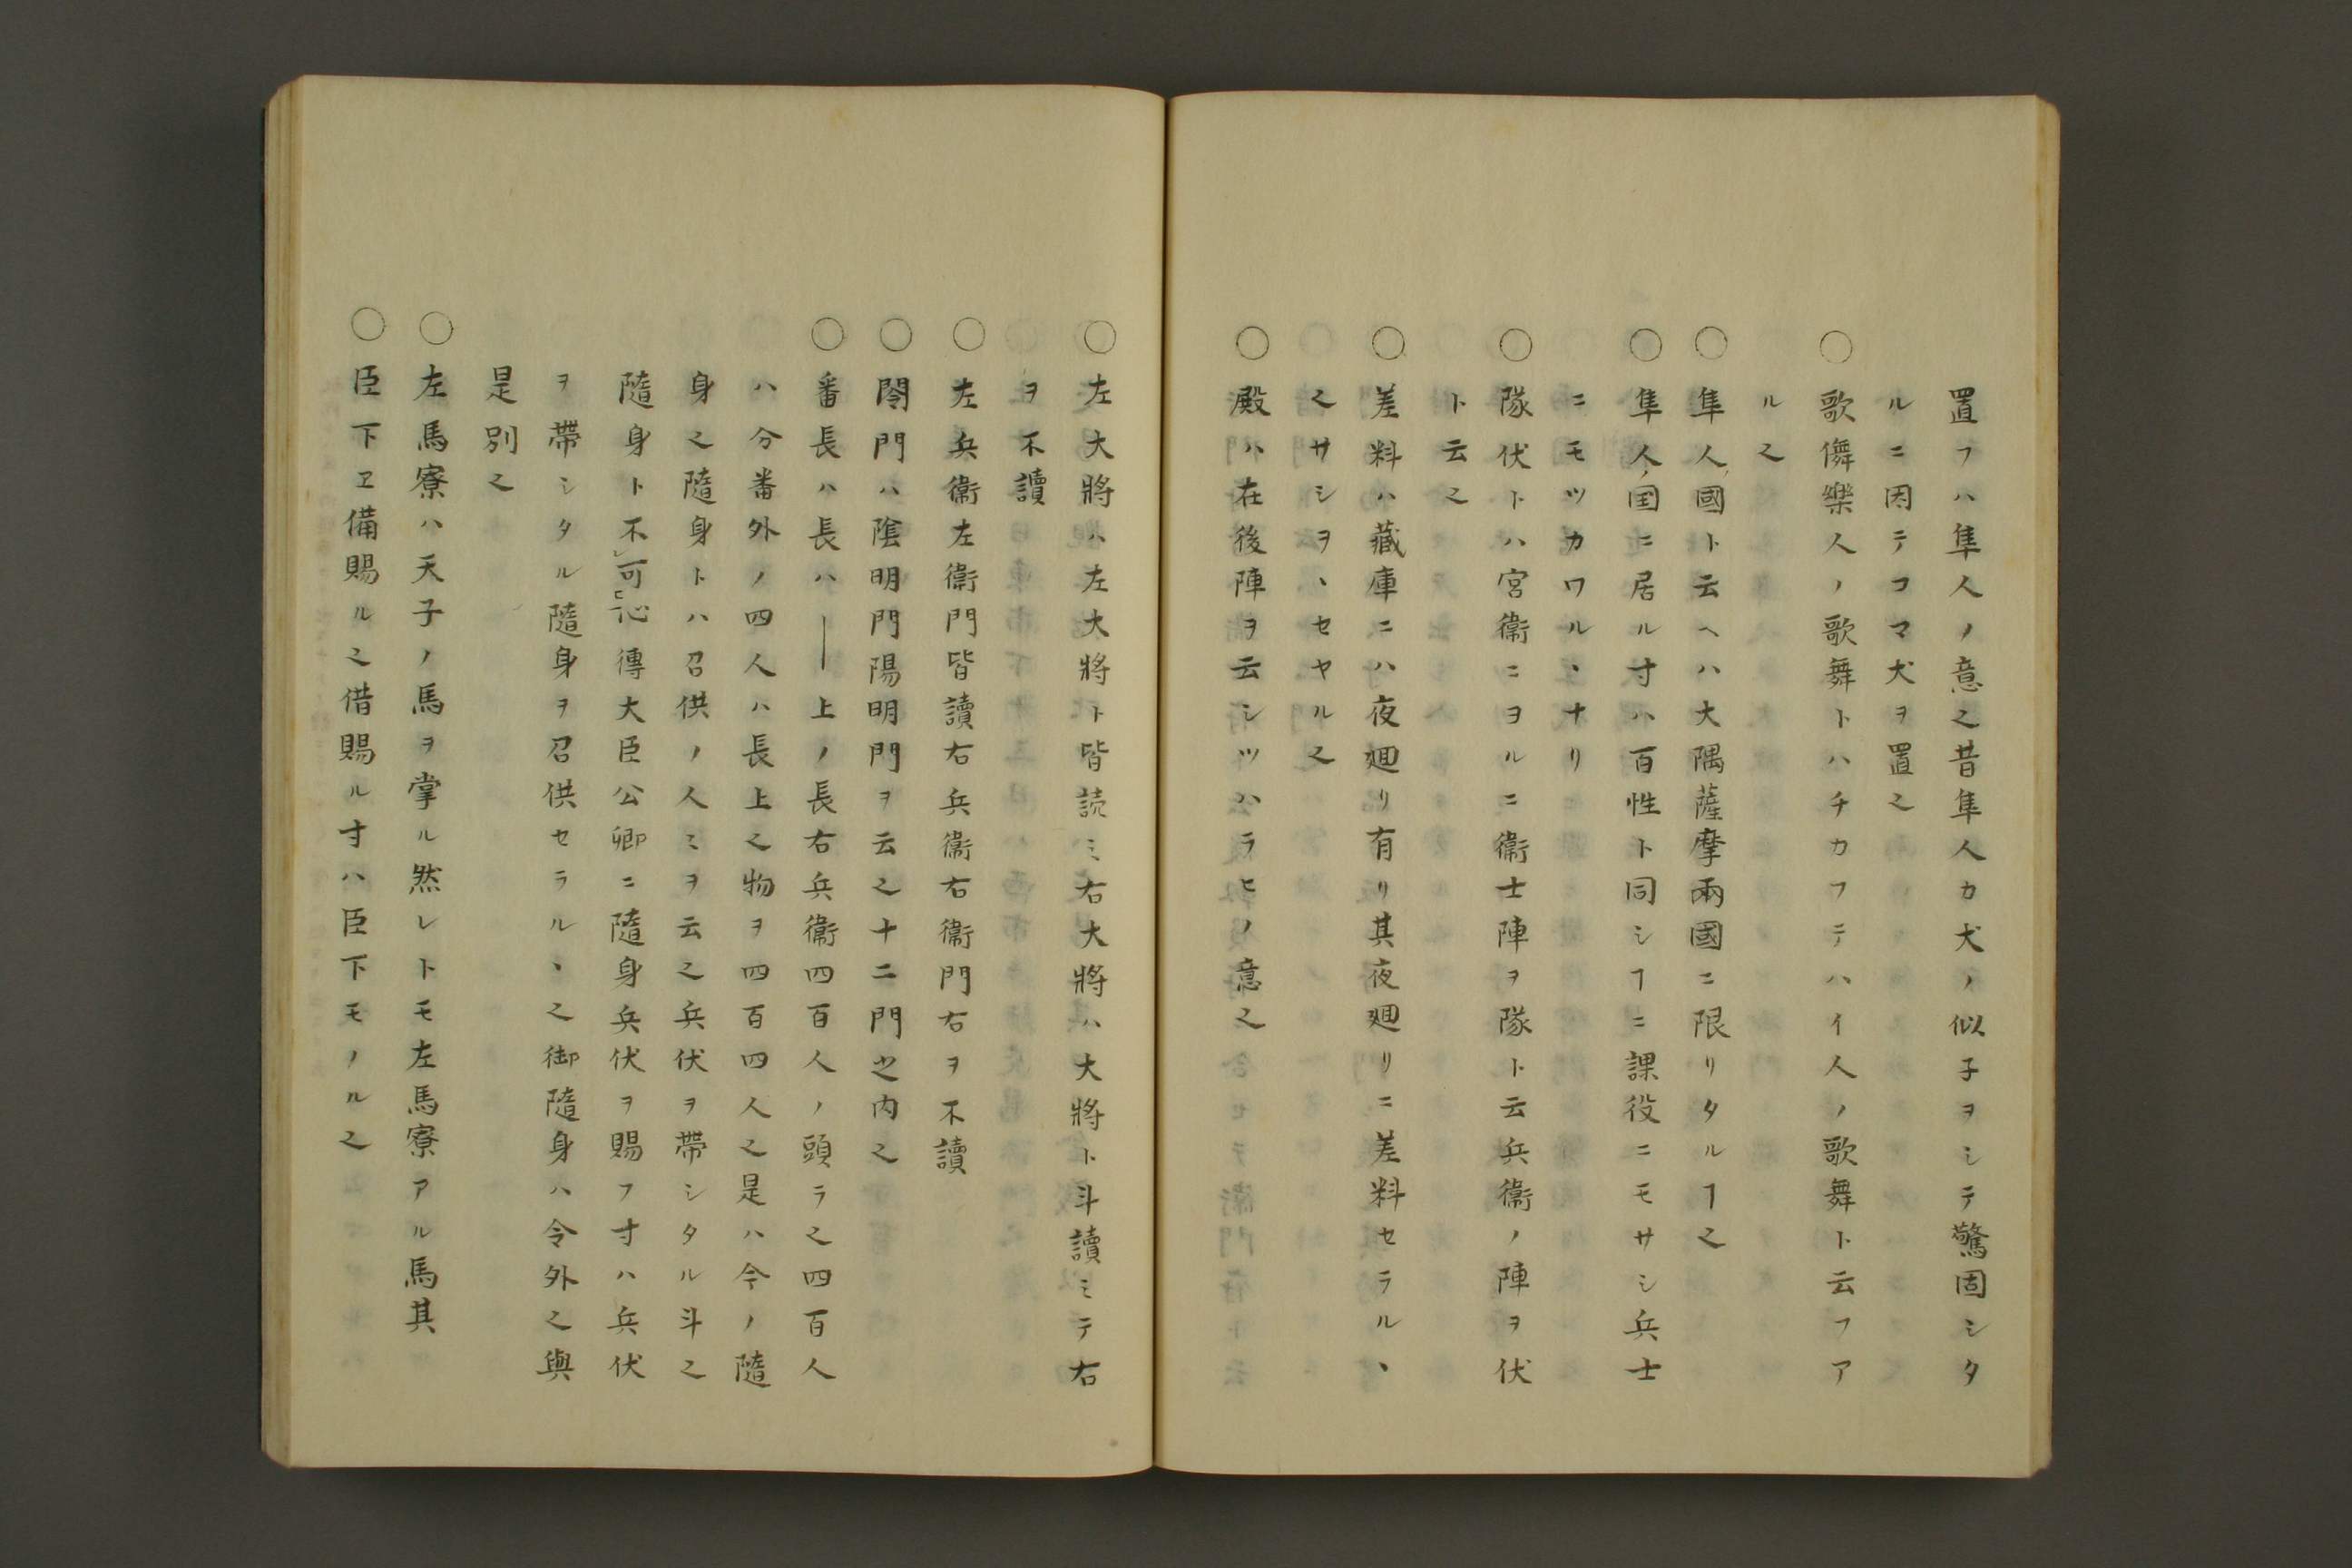 置フハ隼人ノ意之昔隼人カ犬ノ似子ヲシテ驚固シタ
ルニ因テコマ犬ヲ置之
○歌儛樂人ノ歌舞トハチカフテハイ人ノ歌舞ト云フア
ル之
○隼人國ト云ヘハ大隅薩摩兩國ニ限リタルヿ之
○隼人ノ国ニ居ル寸ハ百性ト同シヿニ課役ニモサシ兵士
ニモツカワルヽナリ
○隊伏トハ宮衞ニヨルニ衞士陣ヲ隊ト云兵衞ノ陣ヲ伏
ト云之
○差料ハ藏庫ニハ夜廻リ有リ其夜廻リニ差料セラルヽ
之サシヲヽセヤル之
○殿ハ在後陣ヲ云シツハラヒノ意之
○左大將ハ左大將ト皆読ミ右大將ハ大將ト斗讀ミテ右
ヲ不讀
○左兵衞左衞門皆讀右兵衞右衞門右ヲ不讀
○閤門ハ陰明門陽明門ヲ云之十二門之内之
○番長ハ長ハ―上ノ長右兵衞四百人ノ頭ラ之四百人
ハ分番外ノ四人ハ長上之物ヲ四百四人之是ハ今ノ隨
身之隨身トハ召供ノ人ミヲ云之兵伏ヲ帶シタル斗之
隨身ト不レ可レ心得大臣公卿ニ隨身兵伏ヲ賜フ寸ハ兵伏
ヲ帶シタル隨身ヲ召供セラルヽ之御隨身ハ令外之與
是別之
○左馬寮ハ天子ノ馬ヲ掌ル然レトモ左馬寮アル馬其
○臣下ヱ備賜ル之借賜ル寸ハ臣下モノル之